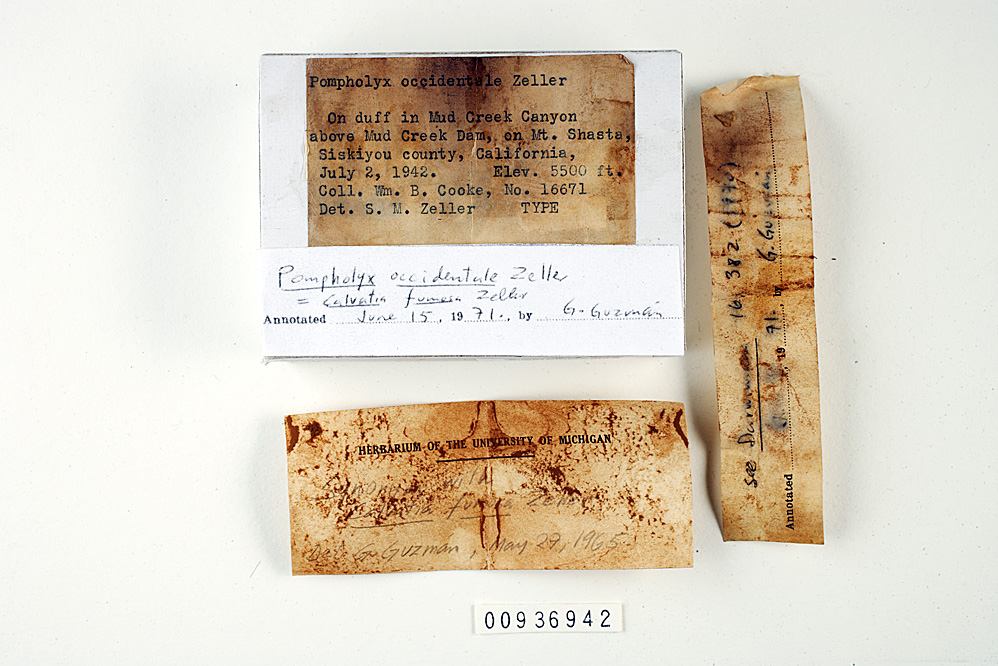 Pompholyx occidentale Zeller
On duff in Mud Creek Canyon
above Mud Creek Dam, on Mt. Shasta,
Siskiyou county, California,
July 2, 1942. Elev. 5500 ft.
Coll. Wm. B. Cooke, No. 16671
Det. S. M. Zeller TYPE
Pompholyx occidentale Zeller
= Calvatia fumosa Zeller
Annotated June 15, 1971., by G. Guzmán
HERBARIUM OF THE UNIVERSITY OF MICHIGAN
Calvatia fumosa Zeller
Det. G. Guzmán, May 29, 1965
see Darwiniana 16, 382 (1970)
Annotated , 1971., by G. Guzmán
00936942